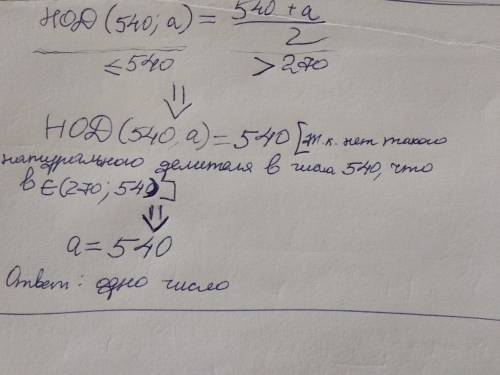 НОД (540; a) = 540 + a / 2
≤ 540 > 270
⇓
НОД (540, a) = 540 [т.к. нет такого
натурального делителя в числа 540, что
в ∈ (270; 540)]
⇓
a = 540
Ответ: одно число